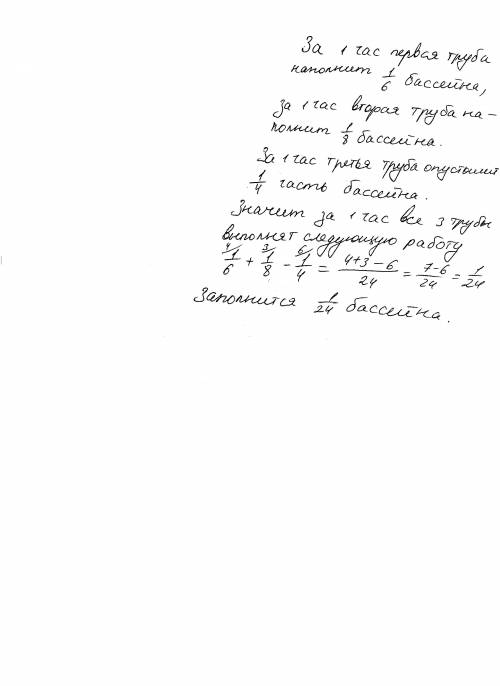 За 1 час первая труба
наполнит 1/6 бассейна,
за 1 час вторая труба на-
полнит 1/8 бассейна.
За 1 час третья труба опустошит
1/4 часть бассейна.
Значит за 1 час все 3 трубы
выполнят следующую работу
4/ 1/6 + 3/ 1/8 - 6/ 1/4 = (4+3-6)/24 = (7-6)/24 = 1/24
Заполнится 1/24 бассейна.